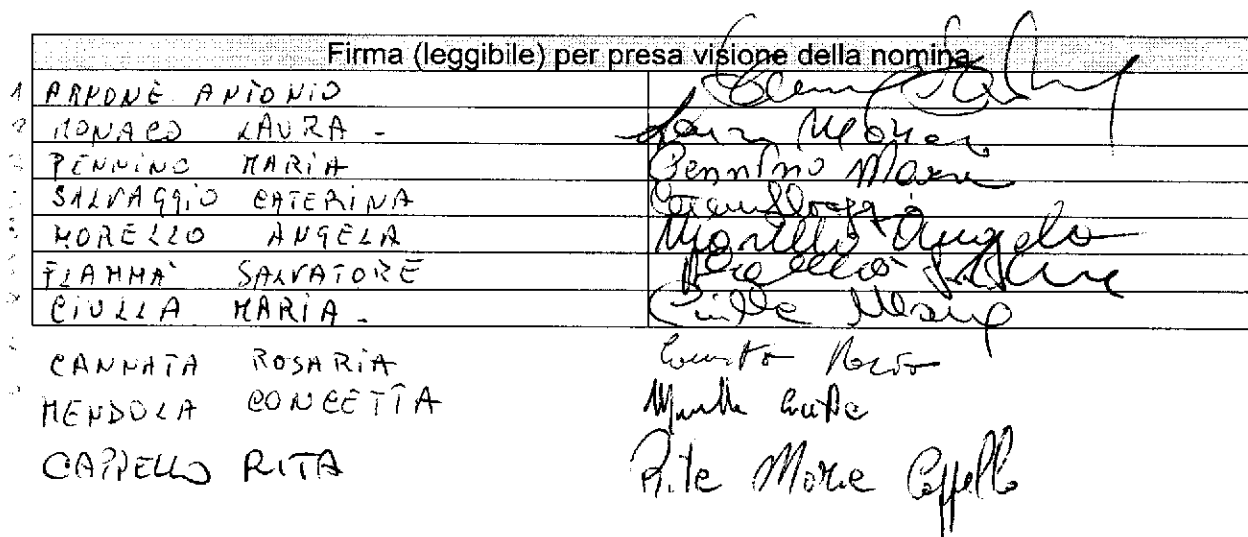 Firma (leggibile) per presa visione della nomina
1 ARNONE ANTONIO
2 MONACO LAURA - Laura Monaco
PENNINO MARIA Pennino Maria
SALVAGGIO CATERINA
MORELLO ANGELA Morello Angela
FLAMMA' SALVATORE
CIULLA MARIA - Ciulla Maria
CANNATA ROSARIA
MENDOLA CONCETTA
CAPPELLO RITA Rita Maria Cappello